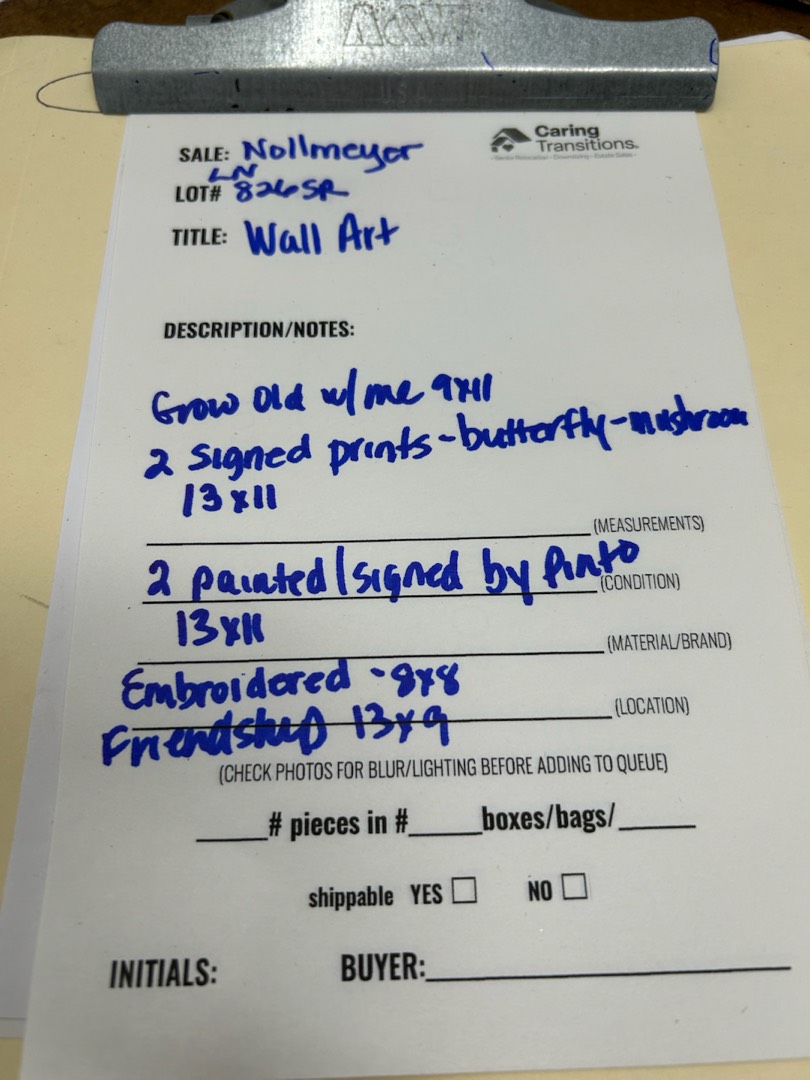 SALE: Nollmeyer
Caring
Transitions.
LN
LOT# 826SR
TITLE: Wall Art
DESCRIPTION/NOTES:
Grow Old w/me 9x11
2 Signed prints-butterfly-mushroom
13x11
(MEASUREMENTS)
2 painted/signed by Pinto
(CONDITION)
13x11
(MATERIAL/BRAND)
Embroidered - 8x8
(LOCATION)
Friendship 13x9
(CHECK PHOTOS FOR BLUR/LIGHTING BEFORE ADDING TO QUEUE)
____# pieces in #____boxes/bags/____
shippable YES ☐ NO ☐
INITIALS: BUYER:____